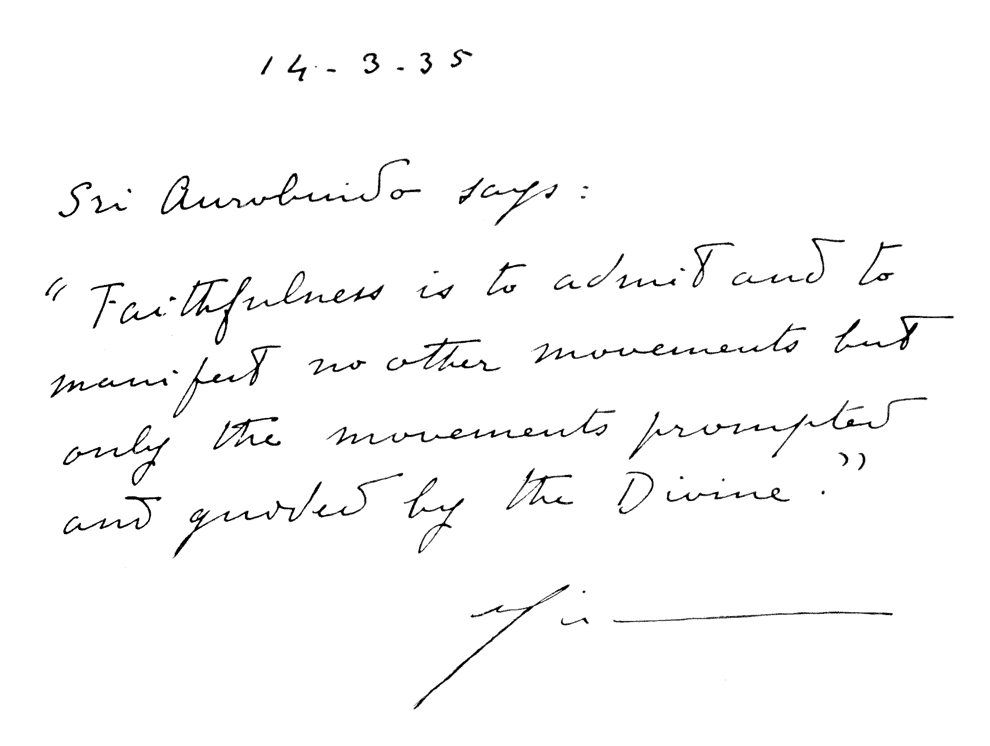 14-3-35
Sri Aurobindo says:
"Faithfulness is to admit and to
manifest no other movements but
only the movements prompted
and guided by the Divine."